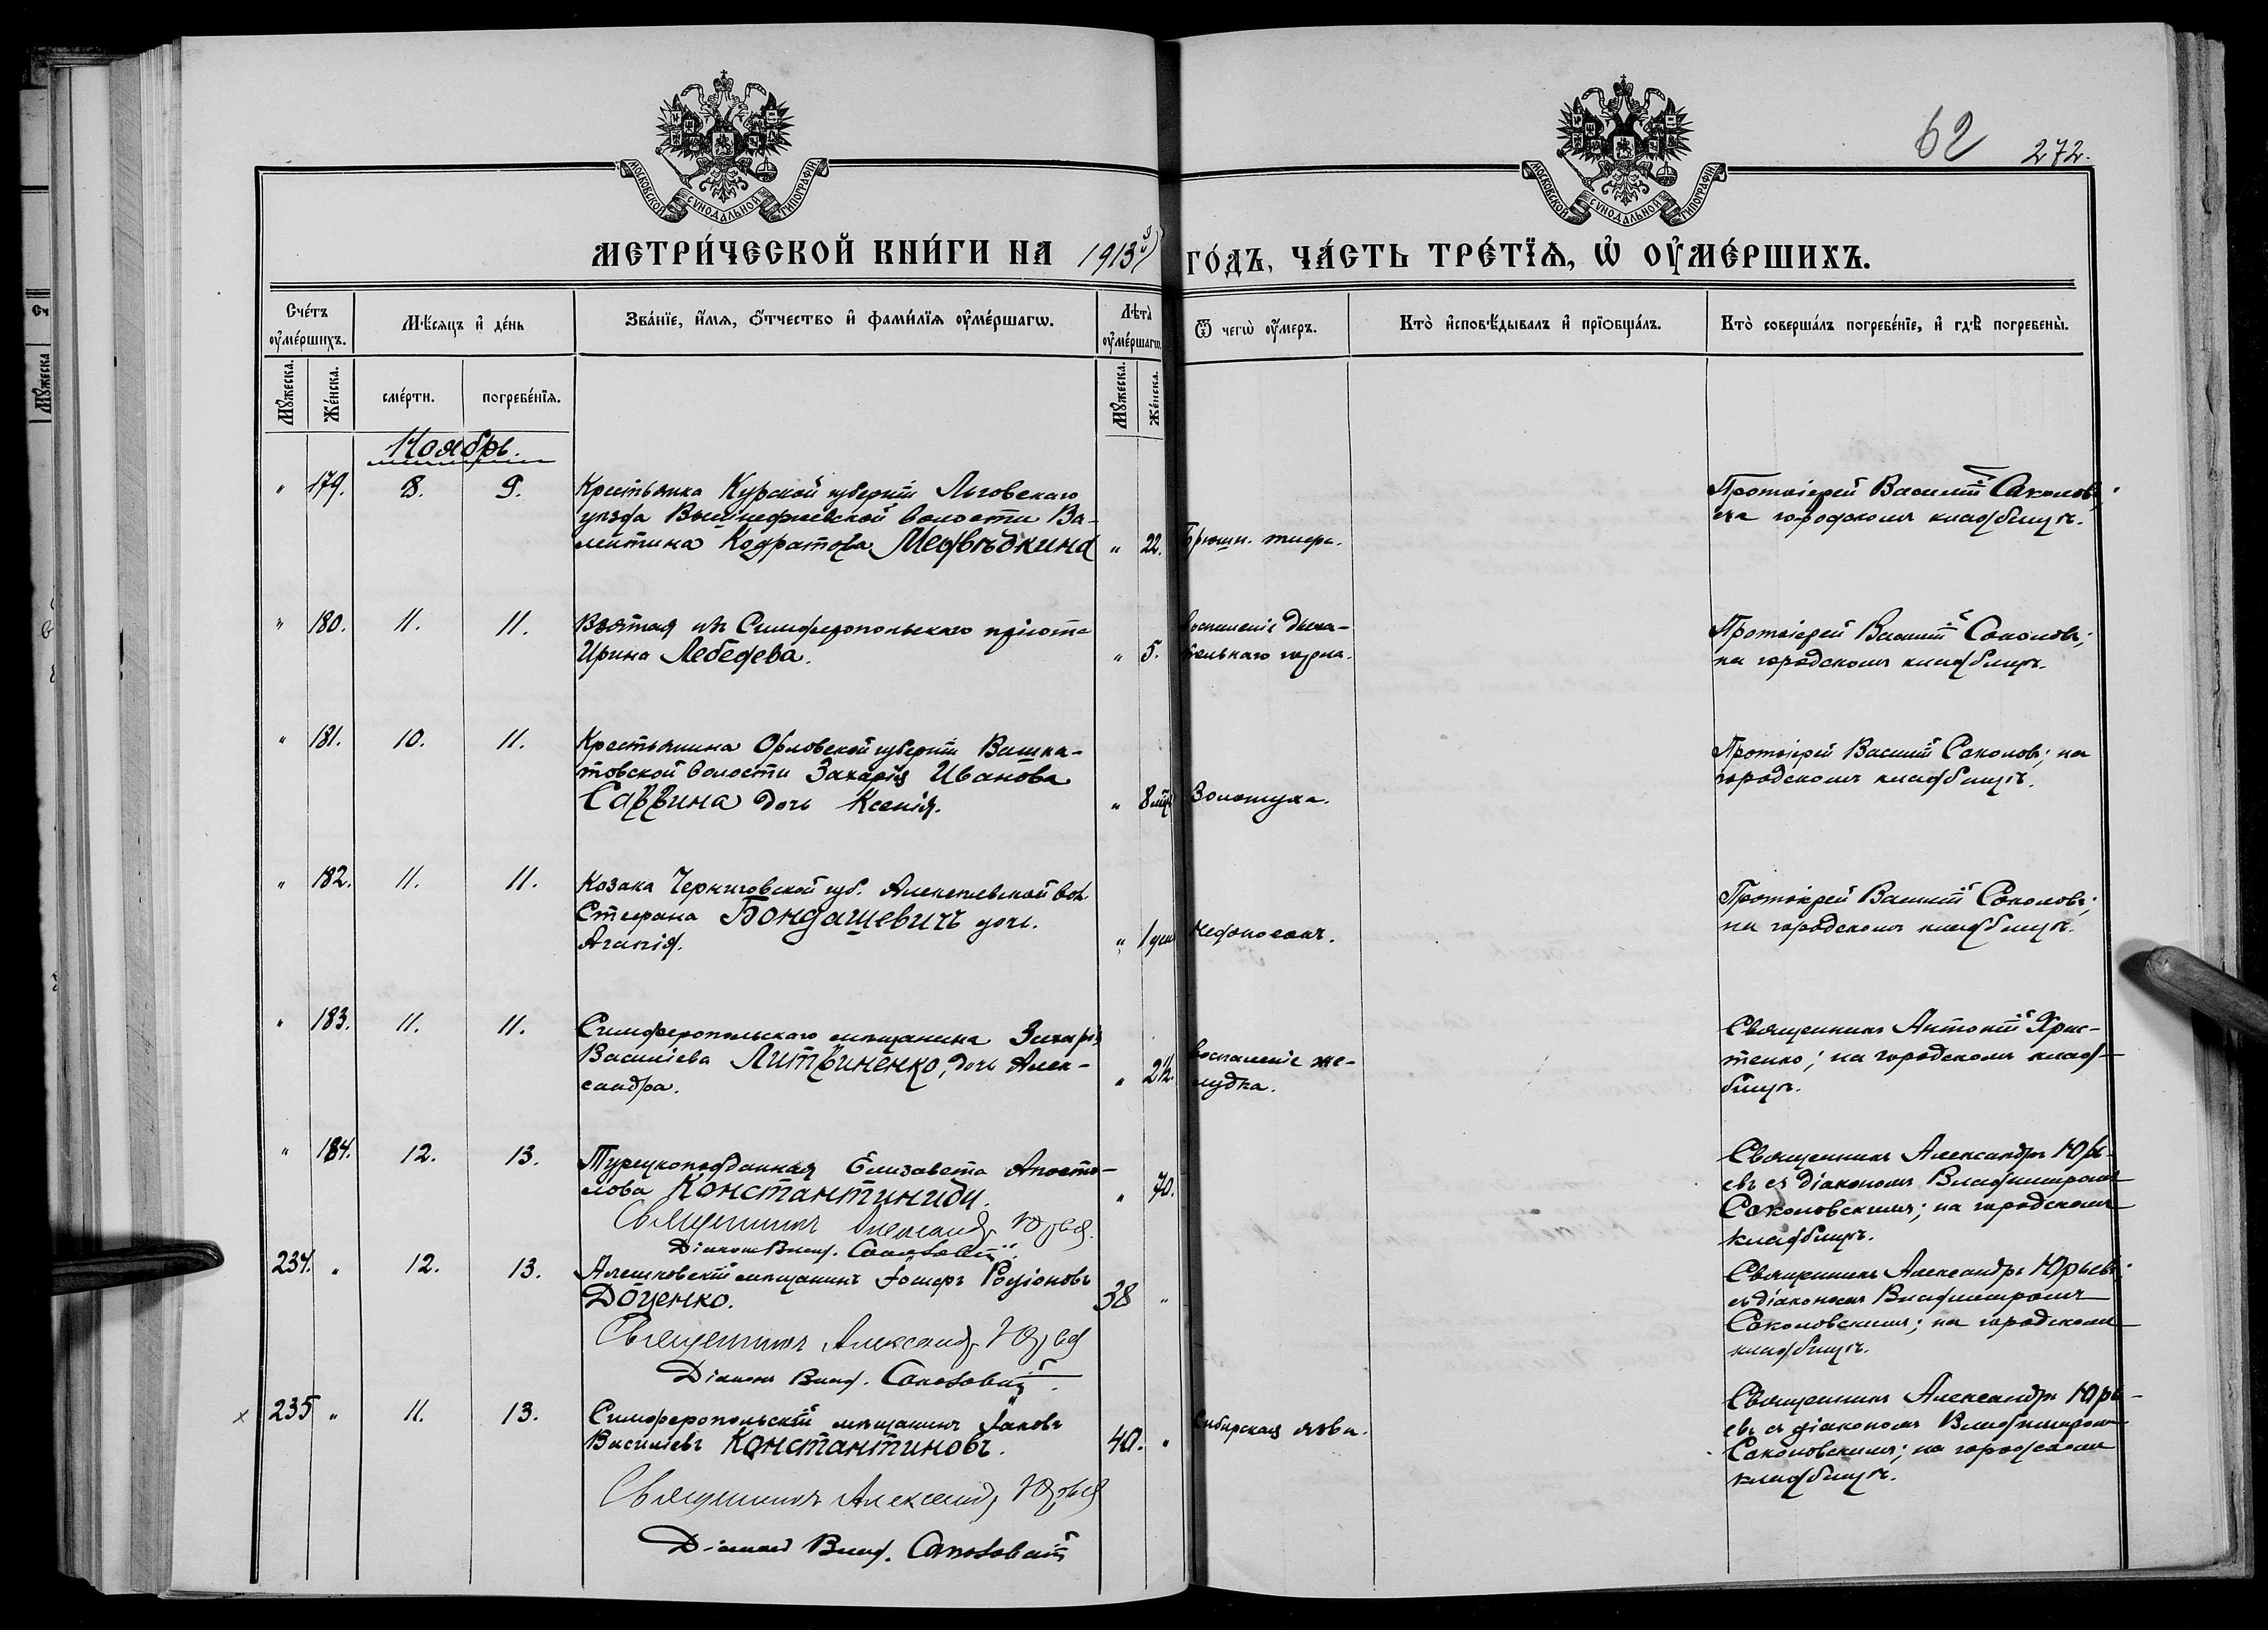 62 272.
МОСКОВСКОЙ СѴНОДАЛЬНОЙ ТИПОГРАФІИ
МОСКОВСКОЙ СѴНОДАЛЬНОЙ ТИПОГРАФІИ
МЕТРИ́ЧЕСКОЙ КНИ́ГИ НА 1913й ГО́ДЪ, ЧА́СТЬ ТРЕ́ТЇѦ, Ѡ҆ ОУ҆МЕ́РШИХЪ.
Сче́тъ оу҆ме́ршихъ.
Мѣ́сяцъ и҆ де́нь
Зва́нїе, и҆́мѧ, ѻ҆́тчество и҆ фами́лїѧ оу҆ме́ршагѡ.
Лѣта̀ оу҆ме́ршагѡ.
Ѿ чегѡ̀ оу҆́меръ.
Кто̀ и҆сповѣ́дывалъ и҆ прїѻбща́лъ.
Кто̀ соверша́лъ погребе́нїе, и҆ гдѣ̀ погребены̀.
Мꙋ́жеска. Же́нска. сме́рти. погребе́нїѧ. Мꙋ́жеска. Же́нска.
Ноябрь.
" 179. 8. 9. Крестьянка Курской губерніи Льговскаго
уѣзда волости Ва-
лентина Кодратова Медвѣдкина " 22. Брюшн. тифъ.
Протоіерей Василій Соколовъ;
на городскомъ кладбищѣ.
" 180. 11. 11. Взятая изъ Симферопольскаго пріюта
Ирина Лебедева. " 5.
Воспаленіе дыха-
тельнаго горла.
Протоіерей Василій Соколовъ;
на городскомъ кладбищѣ.
" 181. 10. 11. Крестьянина Орловской губерніи Вашка-
товской волости Захарія Иванова
Саввина дочь Ксенія. " 8 мѣс. Золотуха.
Протоіерей Василій Соколовъ; на
городскомъ кладбищѣ.
" 182. 11. 11. Козака Черниговской губ. Алексѣевской вол.
Стефана Бондашевичъ дочь
Агапія. " 1 день Недоносокъ.
Протоіерей Василій Соколовъ;
на городскомъ кладбищѣ.
" 183. 11. 11. Симферопольскаго мѣщанина Захарія
Василіева Литвиненко, дочь Алек-
сандра. " 2½.
Воспаленіе же-
лудка.
Священникъ Антоній Хрис-
тенко; на городскомъ клад-
бищѣ.
" 184. 12. 13. Турецкоподданная Елизавета Апосто-
лова Константиниди. " 70.
Священникъ Александр Юрьев
Діаконъ Влад. Соколовскій.
Священникъ Александръ Юрь-
евъ съ діакономъ Владимиромъ
Соколовскимъ; на городскомъ
кладбищѣ.
234. " 12. 13. Алешковскій мѣщанинъ Іосифъ Родіоновъ
Доценко. 38 "
Священникъ Александр Юрьев
Діаконъ Влад. Соколовскій.
Священникъ Александръ Юрьевъ
съ діакономъ Владимиромъ
Соколовскимъ; на городскомъ
кладбищѣ.
х 235 " 11. 13. Симферопольскій мѣщанинъ Іаковъ
Василіевъ Константиновъ. 40. " Сибирская язва.
Священникъ Александр Юрьев
Діаконъ Влад. Соколовскій
Священникъ Александръ Юрь-
евъ съ діакономъ Владимиромъ
Соколовскимъ; на городскомъ
кладбищѣ.